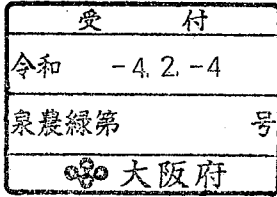 受 付
令和 -4.2.-4
泉農緑第 号
大阪府